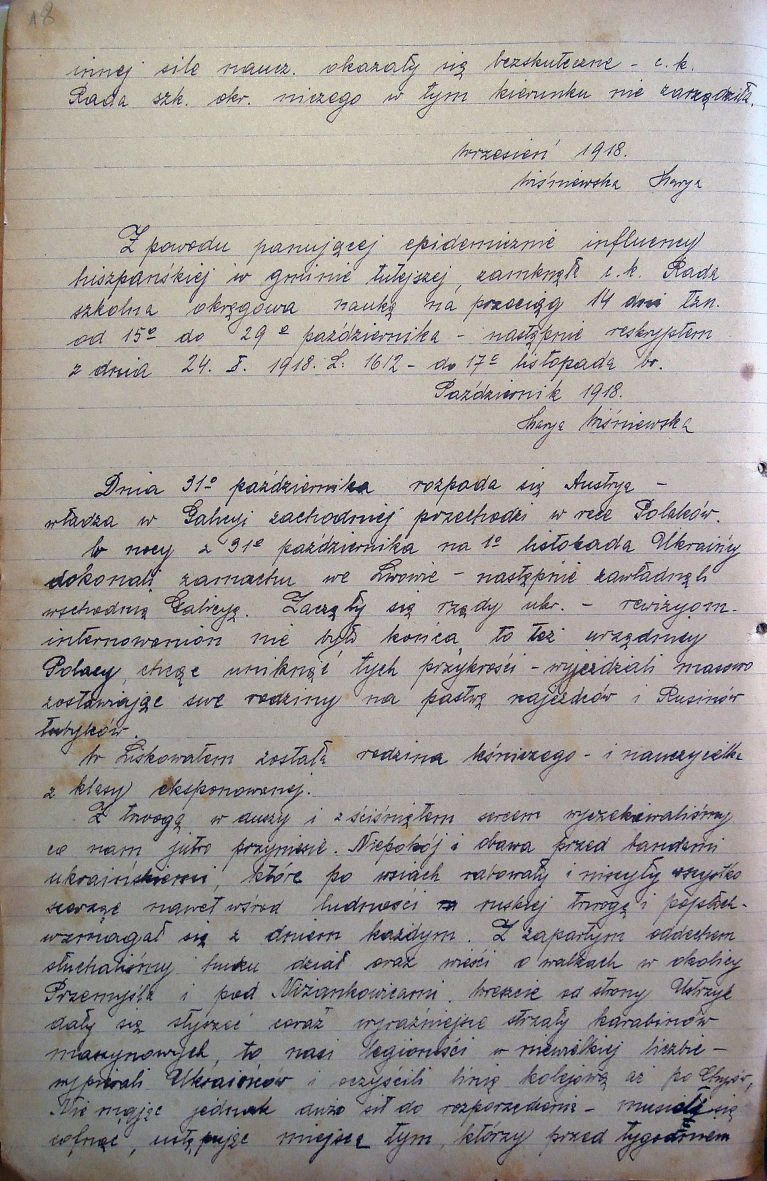 18
innej sile naucz. okazały się bezskuteczne - c. k.
Rada szk. okr. niczego w tym kierunku nie zarządziła.
Wrzesień 1918.
Wiśniewska Marya
Z powodu panującej epidemicznie influency
hiszpańskiej w gminie tutejszej zamknęła c. k. Rada
szkolna okręgowa naukę na przeciąg 14 dni tzn.
od 15º do 29º października - następnie reskryptem
z dnia 24. X. 1918. L: 1612 - do 17º listopada br.
Październik 1918.
Marya Wiśniewska
Dnia 31º października rozpada się Austrya -
władza w Galicyi zachodniej przechodzi w ręce Polaków.
W nocy z 31º października na 1º listopada Ukraińcy
dokonali zamachu we Lwowie - następnie zawładnęli
wschodnią Galicyą. Zaczęły się rządy ukr. - rewizyom-
internowaniom nie było końca to też urzędnicy
Polacy, chcąc uniknąć tych przykrości - wyjeżdżali masowo
zostawiając swe rodziny na pastwę najeźdców i Rusinów
tubylców.
W Liskowatem została rodzina leśniczego - i nauczycielka
z klasy eksponowanej.
Z trwogą w duszy i z ściśniętem sercem wyczekiwaliśmy
co nam jutro przyniesie. Niepokój i obawa przed bandami
ukraińskiemi, które po wsiach rabowały i niszczyły wszystko
szerząc nawet wśród ludności ruskiej trwogę i popłoch-
wzmagał się z dniem każdym. Z zapartym oddechem
słuchaliśmy huku dział oraz wieści o walkach w okolicy
Przemyśla i pod Niżankowicami, wreszcie od strony Ustrzyk
dały się słyszeć coraz wyraźniejsze strzały karabinów
maszynowych, to nasi legioniści w niewielkiej liczbie -
wypierali Ukraińców i oczyścili linię kolejową aż po Chyrów,
Nie mając jednak dużo sił do rozporządzenia - musieli się
cofnąć, ustępując miejsca tym, którzy przed tygodniem